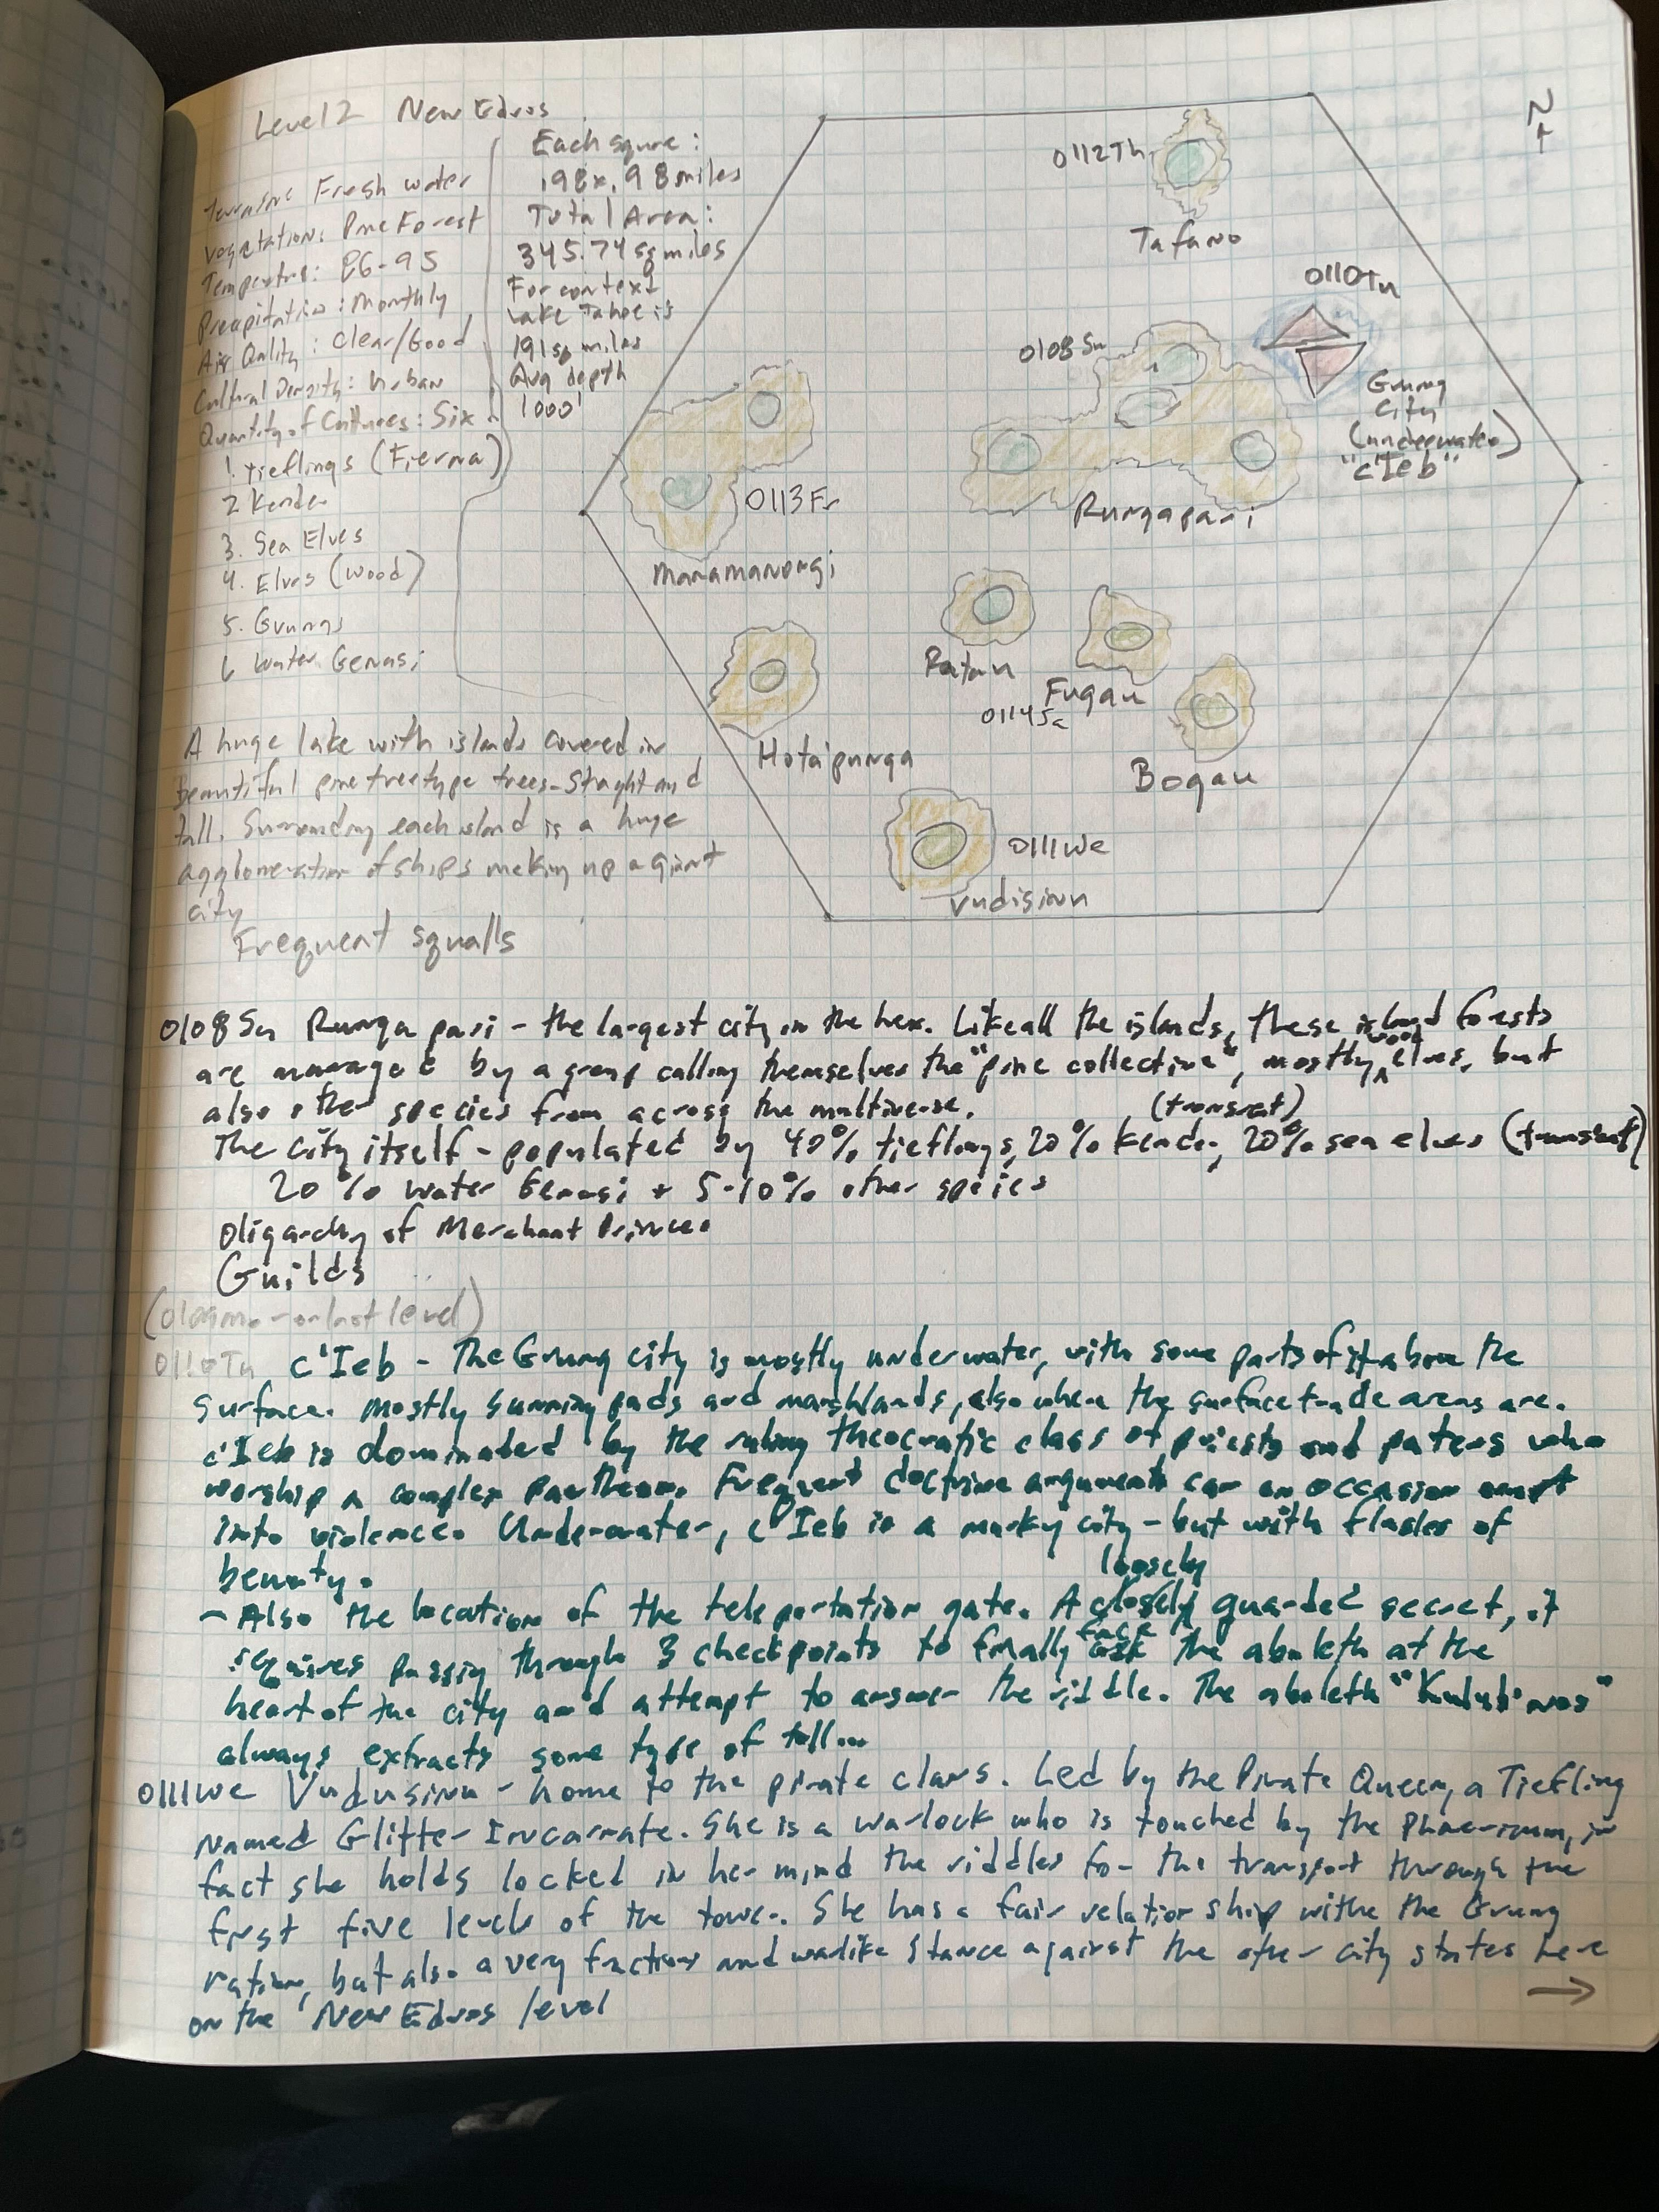 Level 2 New Edros
Terrain: Fresh water
Vegetation: Pine Forest
Temperatre: 26-95
Precipitation: Monthly
Air Quality: Clear/Good
Cultural Density: Urban
Quantity of Cultures: Six
1. Tieflings (Fierna)
2 Kender
3. Sea Elves
4. Elves (Wood)
5. Grungs
6 Water Genasi
Each square:
.98x.98 miles
Total Area:
345.74 sq miles
For context
Lake Tahoe is
191 sq miles
Avg depth
1000'
A huge lake with islands covered in
Beautiful pine tree type trees - Straght and
tall. Surronding each island is a huge
agglomeration of ships making up a giant
city
Frequent squalls
N
0112Th
Tafano
0110Tu
Grung
City
(underwater)
"c'Ieb"
0108Su
Rungapari
0113Fr
Maramanongi
Ratan
Fugau
0114Sa
Bogau
Hotaipunga
0111We
Vudisiun
0108 Su Runga pari - the largest city in the hex. Like all the islands, these island forests
are managed by a group calling themselves the "pine collective", mostly wood elves, but
also other species from across the multiverse.
(transient)
The city itself - populated by 40% tieflings, 20% kender, 20% sea elves (transient)
20% water Genasi + 5-10% other species
Oligarchy of Merchant Princes
Guilds
(0109mo - on last level)
0110Tu c'Ieb - The Grung city is mostly underwater, with some parts of it above the
surface. Mostly sunning pads and marshlands, also where the surface trade areas are.
c'Ieb is dominated by the ruling theocratic class of priests and paters who
worship a complex pantheon. Frequent doctrine arguments can on occasion
into violence. Underwater, c'Ieb is a murky city - but with flashes of
beauty.
loosely
- Also the location of the teleportation gate. A closely guarded secret, it
requires passing through 3 checkpoints to finally face the aboleth at the
heart of the city and attempt to answer the riddle. The aboleth
always extracts some type of toll...
0111We Vudusiun - home to the pirate clans. Led by the Pirate Queen, a Tiefling
Named Glitter Incarnate. She is a warlock who is touched by the in
fact she holds locked in her mind the riddles for the transport through the
first five levels of the tower. She has a fair relationship withe the Grung
nation, but also a very fractious and warlike stance against the other city states here
on the New Edros level
→